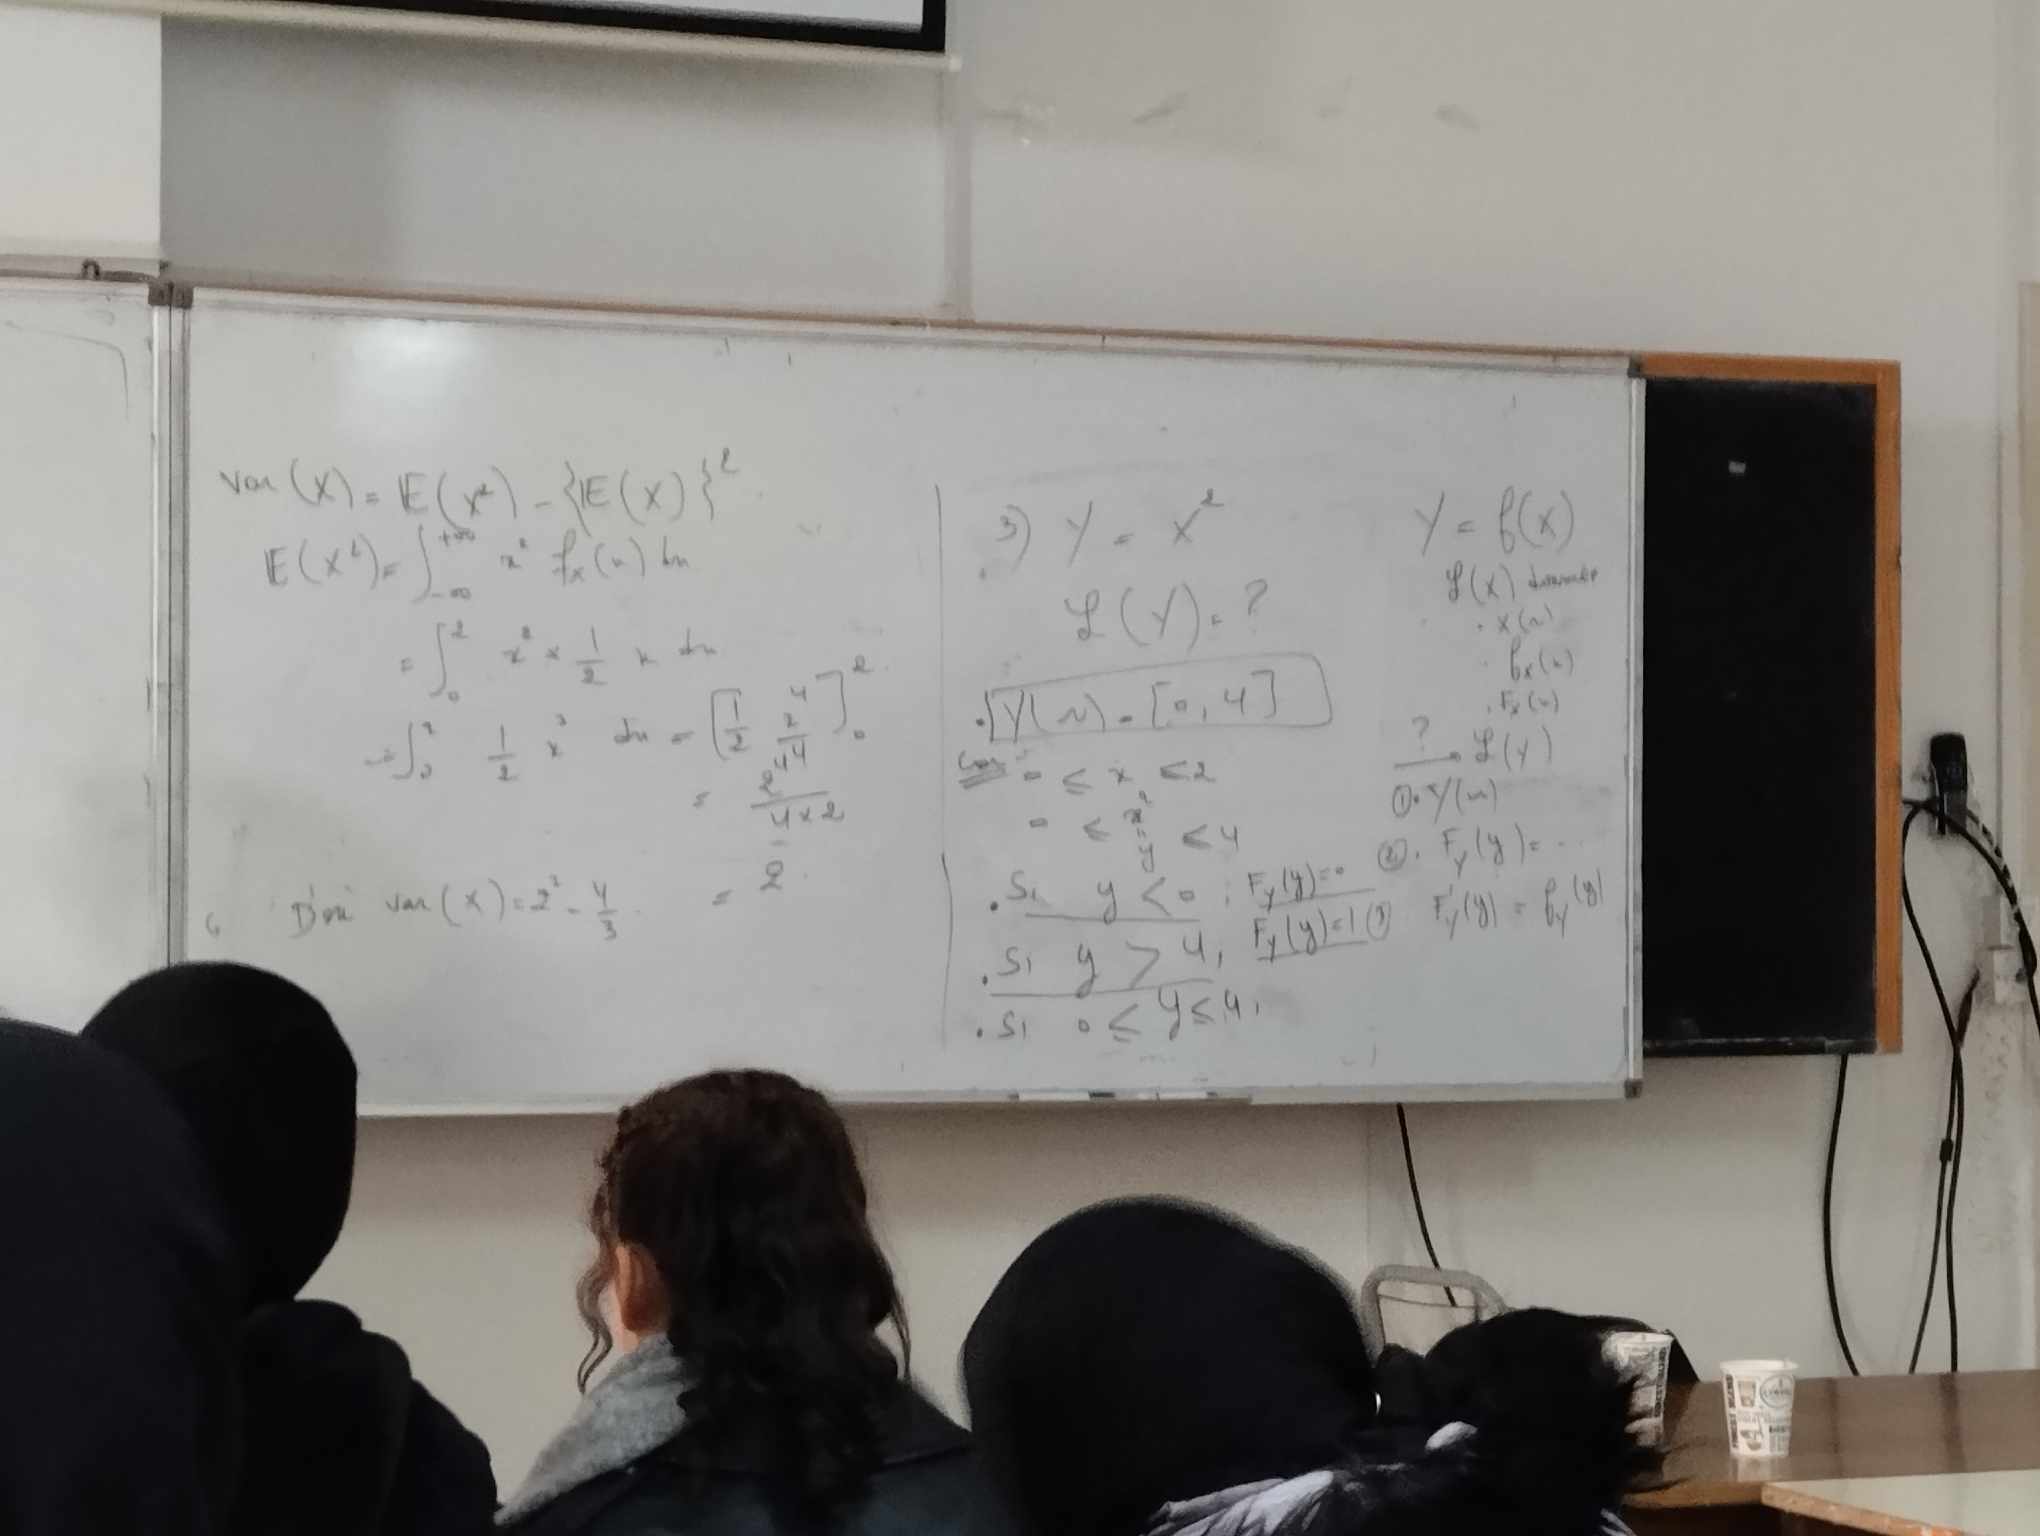 Var(X) = E(X²) - {E(X)}²
E(X²) = ∫_{-∞}^{+∞} x² f_X(x) dx
= ∫_0^2 x² × 1/2 x dx
= ∫_0^2 1/2 x³ dx = [1/2 x⁴/4]_0^2
= 2⁴/(4×2)
= 2.
D'où var(X) = 2² - 4/3
3) Y = X²
L(Y) = ?
. Y(Ω) = [0, 4]
Car 0 ≤ x ≤ 2
0 ≤ x² = y ≤ 4
. Si y < 0 ; F_Y(y) = 0
. Si y > 4, F_Y(y) = 1
. Si 0 ≤ y ≤ 4,
Y = f(X)
L(X)
. X(Ω)
. f_X(x)
. F_X(x)
? → L(Y)
① . Y(Ω)
② . F_Y(y) = ...
③ F'_Y(y) = f_Y(y)